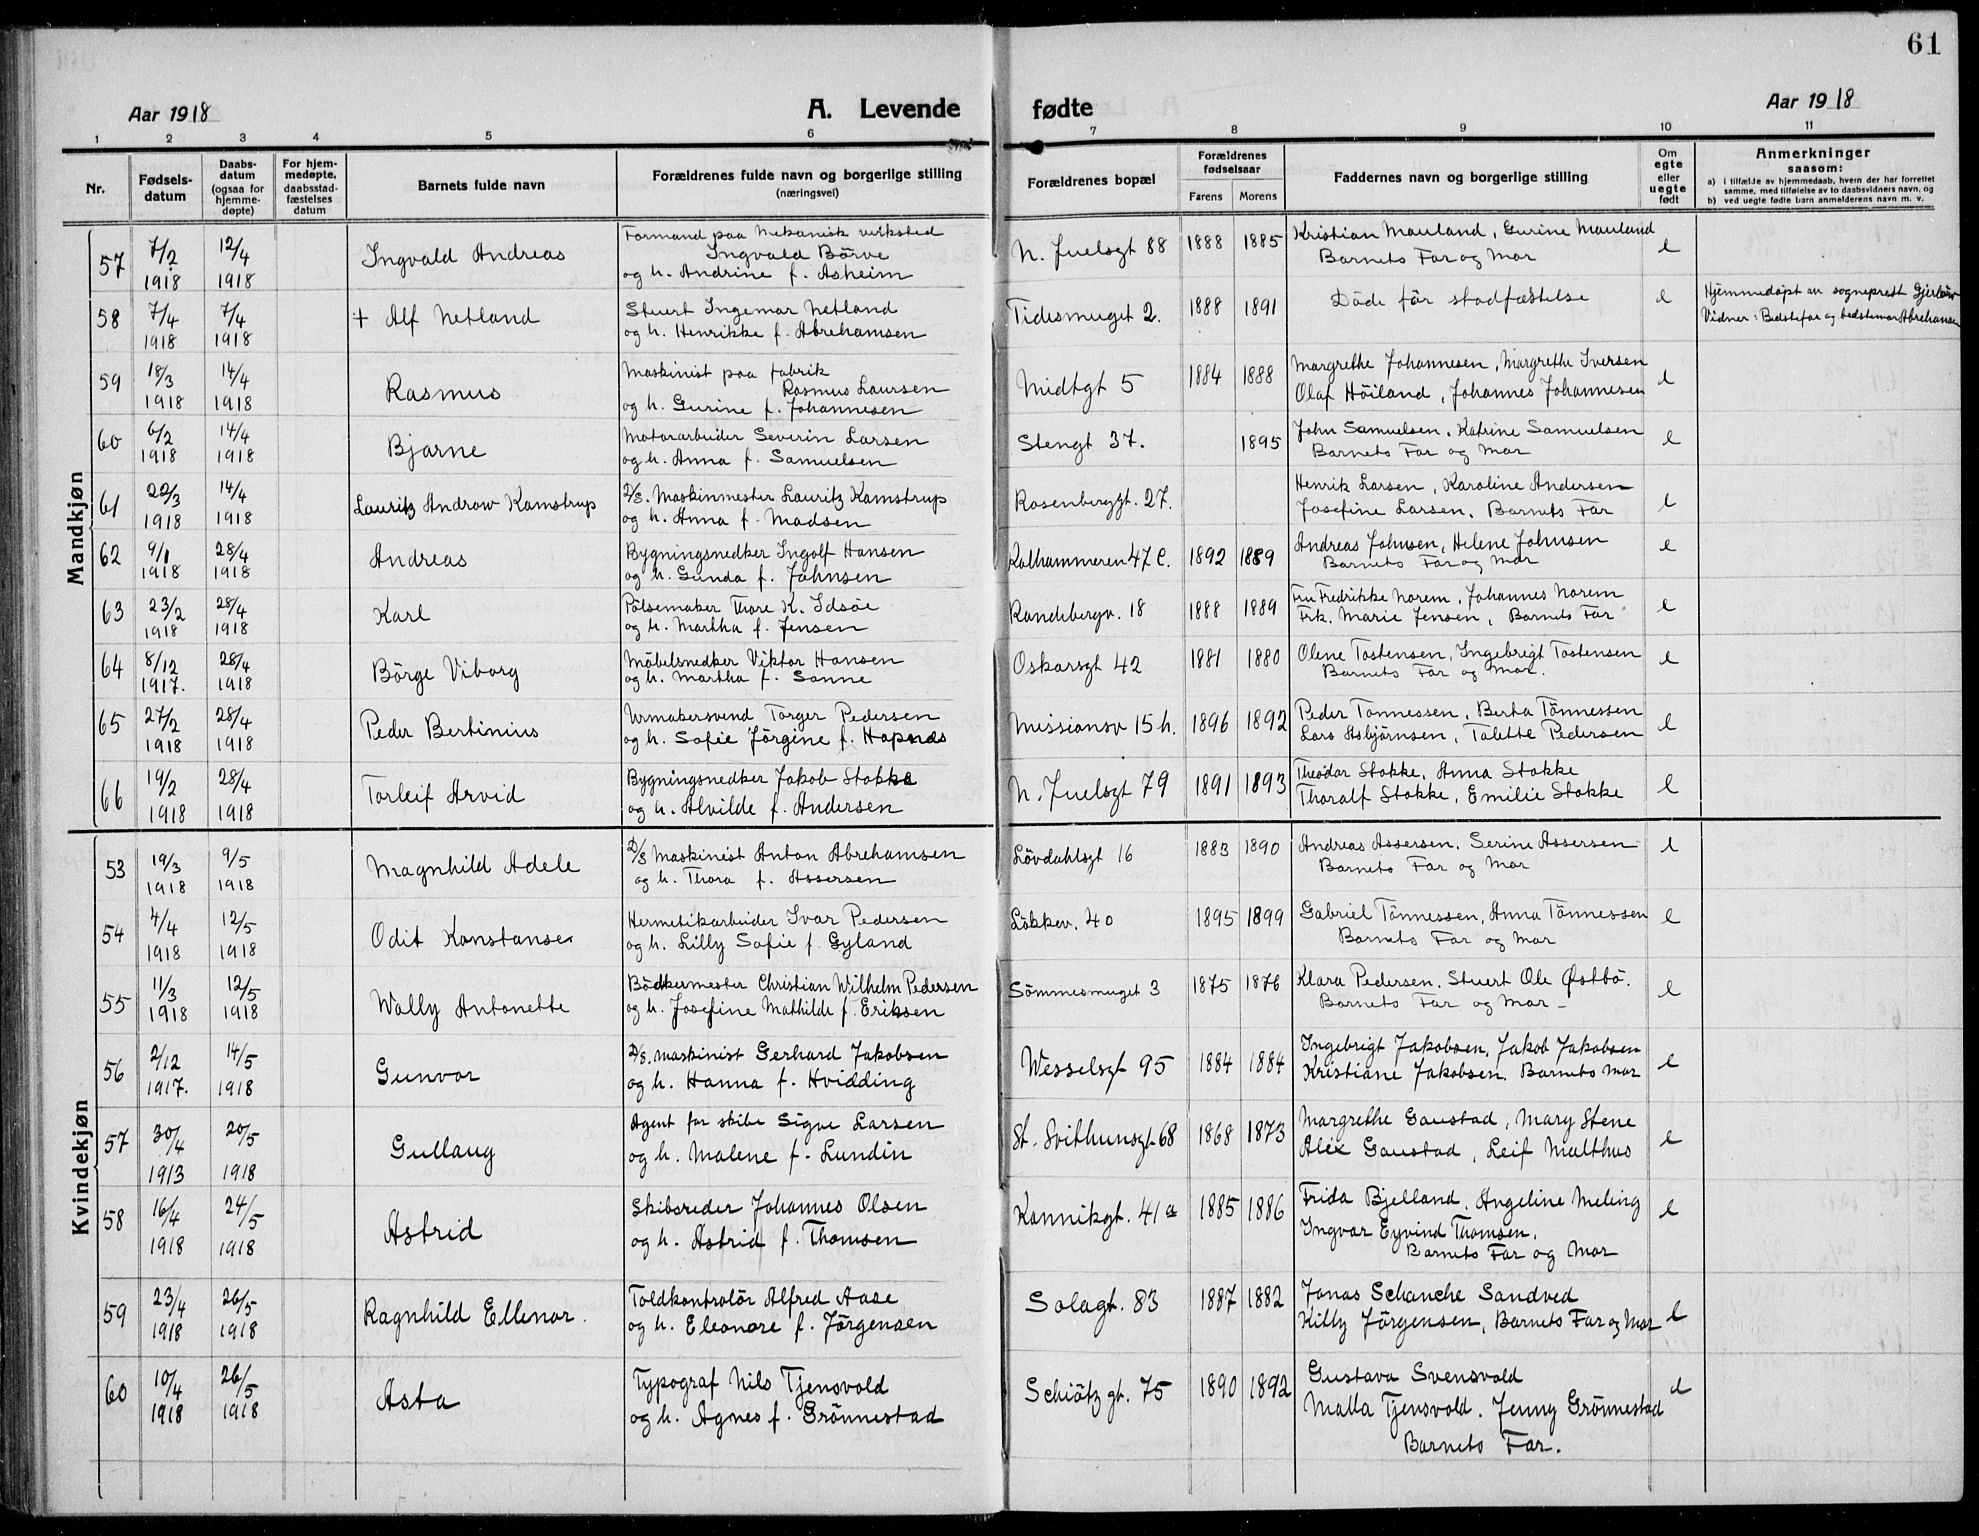 61
Aar 1918 A. Levende fødte Aar 1918
1 2 3 4 5 6 7 8 9 10 11
Nr. | Fødsels-datum | Daabs-datum (ogsaa for hjemme-døpte) | For hjem-medøpte, daabsstad-fæstelses datum | Barnets fulde navn | Forældrenes fulde navn og borgerlige stilling (næringsvei) | Forældrenes bopæl | Forældrenes fødselsaar Farens Morens | Faddernes navn og borgerlige stilling | Om egte eller uegte født | Anmerkninger saasom: a) i tilfælde av hjemmedaab, hvem der har forrettet samme, med tilføielse av to daabsvidners navn, og b) ved uegte fødte barn anmelderens navn m. v.
Mandkjøn
57 | 7/2 1918 | 12/4 1918 | Ingvald Andreas | Formand paa mekanisk verksted Ingvald Börve og h. Andrine f. Asheim | N. Juelsgt 88 | 1888 | 1885 | Kristian Mauland, Gurine Mauland Barnets Far og Mor | e
58 | 7/4 1918 | 7/4 1918 | + Alf Netland | Stuert Ingemar Netland og h. Henrikke f. Abrehamsen | Tidesmuget 2. | 1888 | 1891 | Döde för stadfæstelse | e | Hjemmedöpt av sogneprest Gjerløw Vidner: Bedstefar og bedstemor Abrehamsen
59 | 18/3 1918 | 14/4 1918 | Rasmus | Maskinist paa fabrik Rasmus Laursen og h. Gurine f. Johannesen | Midtgt 5 | 1884 | 1888 | Margrethe Johannesen, Margrethe Iversen Olaf Höiland, Johannes Johannesen | e
60 | 6/2 1918 | 14/4 1918 | Bjarne | Motorarbeider Severin Larsen og h. Anna f. Samuelsen | Stengt 37. | 1895 | John Samuelsen, Katrine Samuelsen Barnets Far og Mor | e
61 | 22/3 1918 | 14/4 1918 | Lauritz Androw Kamstrup | D/S. Maskinmester Lauritz Kamstrup og h. Anna f. Madsen | Rosenberggt. 27. | Henrik Larsen, Karoline Andersen Josefine Larsen, Barnets Far | e
62 | 9/1 1918 | 28/4 1918 | Andreas | Bygningsnedker Ingolf Hansen og h. Gunda f. Johnsen | Kalhammeren 47 C. | 1892 | 1889 | Andreas Johnsen, Helene Johnsen Barnets Far og Mor | e
63 | 23/2 1918 | 28/4 1918 | Karl | Pölsemaker Thore K. Idsöe og h. Martha f. Jensen | Randebergv. 18 | 1888 | 1889 | Fru Fredrikke Norem, Johannes Norem Frk. Marie Jensen, Barnets Far | e
64 | 8/12 1917. | 28/4 1918 | Börge Viborg | Möbelsnedker Viktor Hansen og h. Martha f. Sanne | Oskarsgt 42 | 1881 | 1880 | Olene Tostensen, Ingebrigt Tostensen Barnets Far og Mor. | e
65 | 27/2 1918 | 28/4 1918 | Peder Bertinius | Urmakersvend Torger Pedersen og h. Sofie Jörgine f. Hapnes | Missionsv 15 h. | 1896 | 1892 | Peder Tönnessen, Berta Tönnessen Lars Asbjörnsen, Talette Pedersen | e
66 | 19/2 1918 | 28/4 1918 | Torleif Arvid | Bygningsnedker Jakob Stokke og h. Alvilde f. Andersen | N. Juelsgt 79 | 1891 | 1893 | Theodor Stokke, Anna Stokke Thoralf Stokke, Emilie Stokke | e
Kvindekjøn
53 | 19/3 1918 | 9/5 1918 | Magnhild Adele | D/S Maskinist Anton Abrehamsen og h. Thora f. Assersen | Lövdahlsgt 16 | 1883 | 1890 | Andreas Assersen, Serine Assersen Barnets Far og Mor | e
54 | 4/4 1918 | 12/5 1918 | Odit Konstanse | Hermetikarbeider Ivar Pedersen og h. Lilly Sofie f. Gyland | Lökkev. 40 | 1895 | 1899 | Gabriel Tönnessen, Anna Tönnessen Barnets Far og Mor | e
55 | 11/3 1918 | 12/5 1918 | Wally Antonette | Bödkermester Christian Wilhelm Pedersen og h. Josefine Mathilde f. Eriksen | Sömmesmuget 3 | 1875 | 1876 | Klara Pedersen. Stuert Ole Østbö. Barnets Far og Mor - | e
56 | 2/12 1917. | 14/5 1918 | Gunvor | D/S. Maskinist Gerhard Jakobsen og h. Hanna f. Hvidding | Wesselsgt 95 | 1884 | 1884 | Ingebrigt Jakobsen, Jakob Jakobsen Kristiane Jakobsen. Barnets Mor | e
57 | 30/4 1913 | 20/5 1918 | Gullaug | Agent for skibe Sigve Larsen og h. Malene f. Lundin | St. Svithunsgt 68 | 1868 | 1873 | Margrethe Gaustad, Mary Stene Alex Gaustad, Leif Malthus | e
58 | 16/4 1918 | 24/5 1918 | Astrid | Skibsreder Johannes Olsen og h. Astrid f. Thomsen | Kannikgt. 41 a | 1885 | 1886 | Frida Bjelland, Angeline Meling Ingvar Eyvind Thomsen, Barnets Far og Mor | e
59 | 23/4 1918 | 26/5 1918 | Ragnhild Ellenor. | Toldkontrolör Alfred Aase og h. Eleonore f. Jörgensen | Solagt. 83 | 1887 | 1882 | Jonas Schanche Sandved Kitty Jörgensen, Barnets Far og Mor | e
60 | 10/4 1918 | 26/5 1918 | Asta | Typograf Nils Tjensvold og h. Agnes f. Grönnestad | Schiötz gt. 75 | 1890 | 1892 | Gustava Svensvold Malla Tjensvold. Jenny Grönnestad Barnets Far. | e